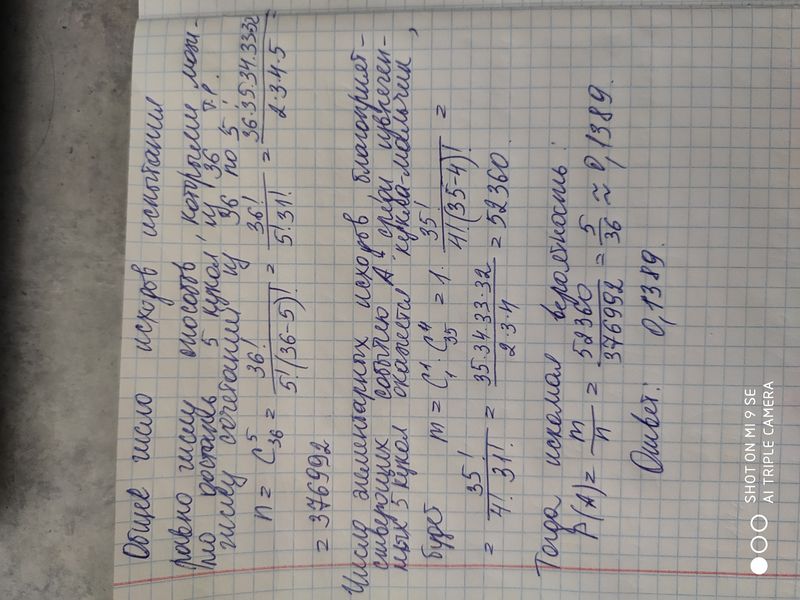 Общее число исходов испытания
равно числу способов, которыми мож-
но достать 5 кукол из 36, т.р.
числу сочетаний из 36 по 5:
n = C⁵₃₆ = 36!/5!(36-5)! = 36!/5!31! = 36·35·34·33·32/2·3·4·5 =
= 376992
Число элементарных исходов, благоприят-
ствующих событию A "среди извлечен-
ных 5 кукол окажется кукла-мальчик",
будет m = C¹₁·C⁴₃₅ = 1· 35!/4!(35-4)! =
= 35!/4!31! = 35·34·33·32/2·3·4 = 52360.
Тогда искомая вероятность:
P(A) = m/n = 52360/376992 = 5/36 ≈ 0,1389.
Ответ: 0,1389.
SHOT ON MI 9 SE
AI TRIPLE CAMERA